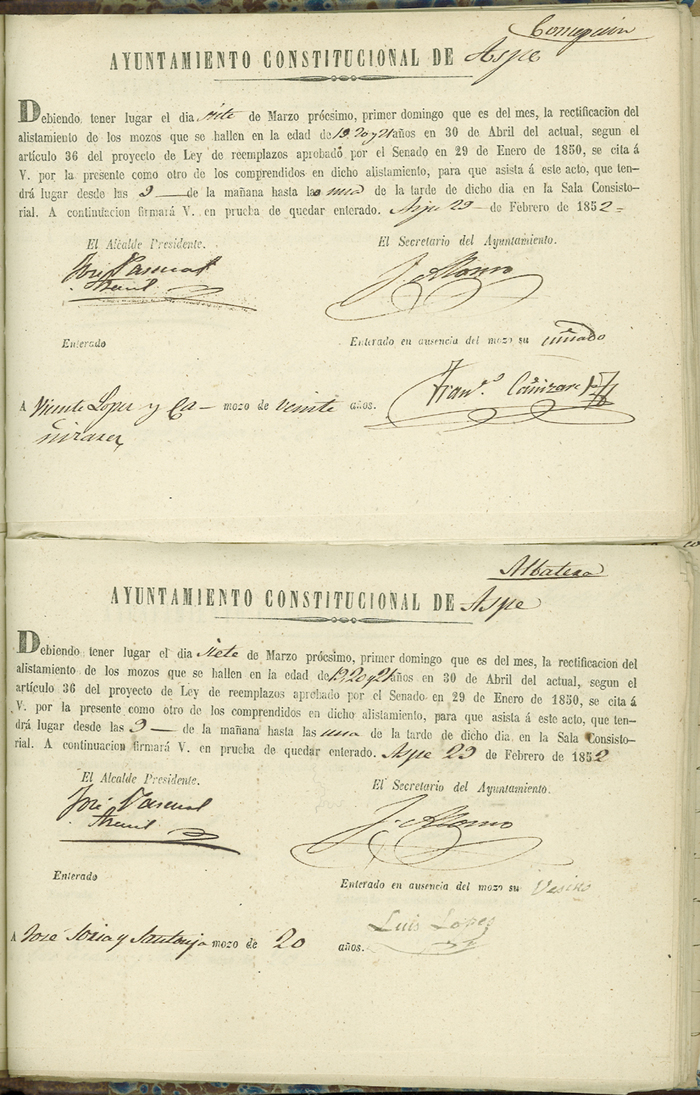 Concepcion
AYUNTAMIENTO CONSTITUCIONAL DE Aspe
Debiendo tener lugar el dia siete de Marzo prócsimo, primer domingo que es del mes, la rectificacion del
alistamiento de los mozos que se hallen en la edad de 19 20 y 21 años en 30 de Abril del actual, segun el
artículo 36 del proyecto de Ley de reemplazos aprobado por el Senado en 29 de Enero de 1850, se cita á
V. por la presente como otro de los comprendidos en dicho alistamiento, para que asista á este acto, que ten-
drá lugar desde las 9 de la mañana hasta la una de la tarde de dicho dia en la Sala Consisto-
rial. A continuacion firmará V. en prueba de quedar enterado. Aspe 29 de Febrero de 1852
El Alcalde Presidente. El Secretario del Ayuntamiento.
José Pascual J. Alonso
Enterado Enterado en ausencia del mozo su cuñado
A Vicente Lopez y Ca- mozo de veinte años. Franco. Cañizares
ñizares
Albatera
AYUNTAMIENTO CONSTITUCIONAL DE Aspe
Debiendo tener lugar el dia siete de Marzo prócsimo, primer domingo que es del mes, la rectificacion del
alistamiento de los mozos que se hallen en la edad de 19 20 y 21 años en 30 de Abril del actual, segun el
artículo 36 del proyecto de Ley de reemplazos aprobado por el Senado en 29 de Enero de 1850, se cita á
V. por la presente como otro de los comprendidos en dicho alistamiento, para que asista á este acto, que ten-
drá lugar desde las 9 de la mañana hasta las una de la tarde de dicho dia en la Sala Consisto-
rial. A continuacion firmará V. en prueba de quedar enterado. Aspe 29 de Febrero de 1852
El Alcalde Presidente. El Secretario del Ayuntamiento.
José Pascual J. Alonso
Enterado Enterado en ausencia del mozo su Vesino
A Jose Soria y Santonja mozo de 20 años. Luis Lopez